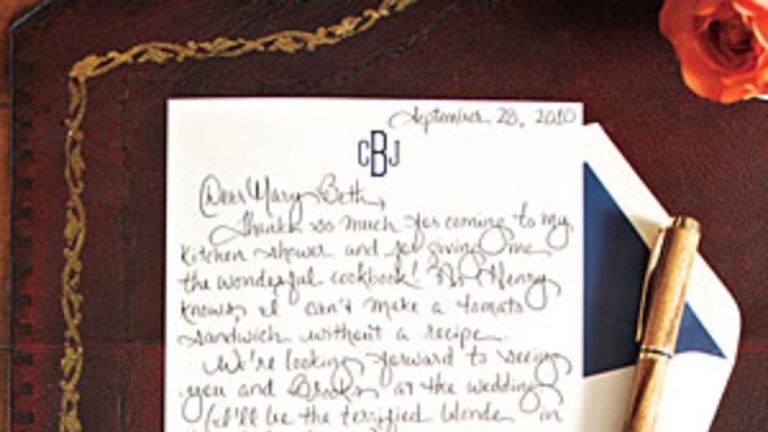 September 28, 2010
CBJ
Dear Mary Beth,
Thanks so much for coming to my
kitchen shower and for giving me
the wonderful cookbook! As Henry
knows, I can't make a tomato
sandwich without a recipe.
We're looking forward to seeing
you and Brooks at the wedding
I'll be the terrified blonde in